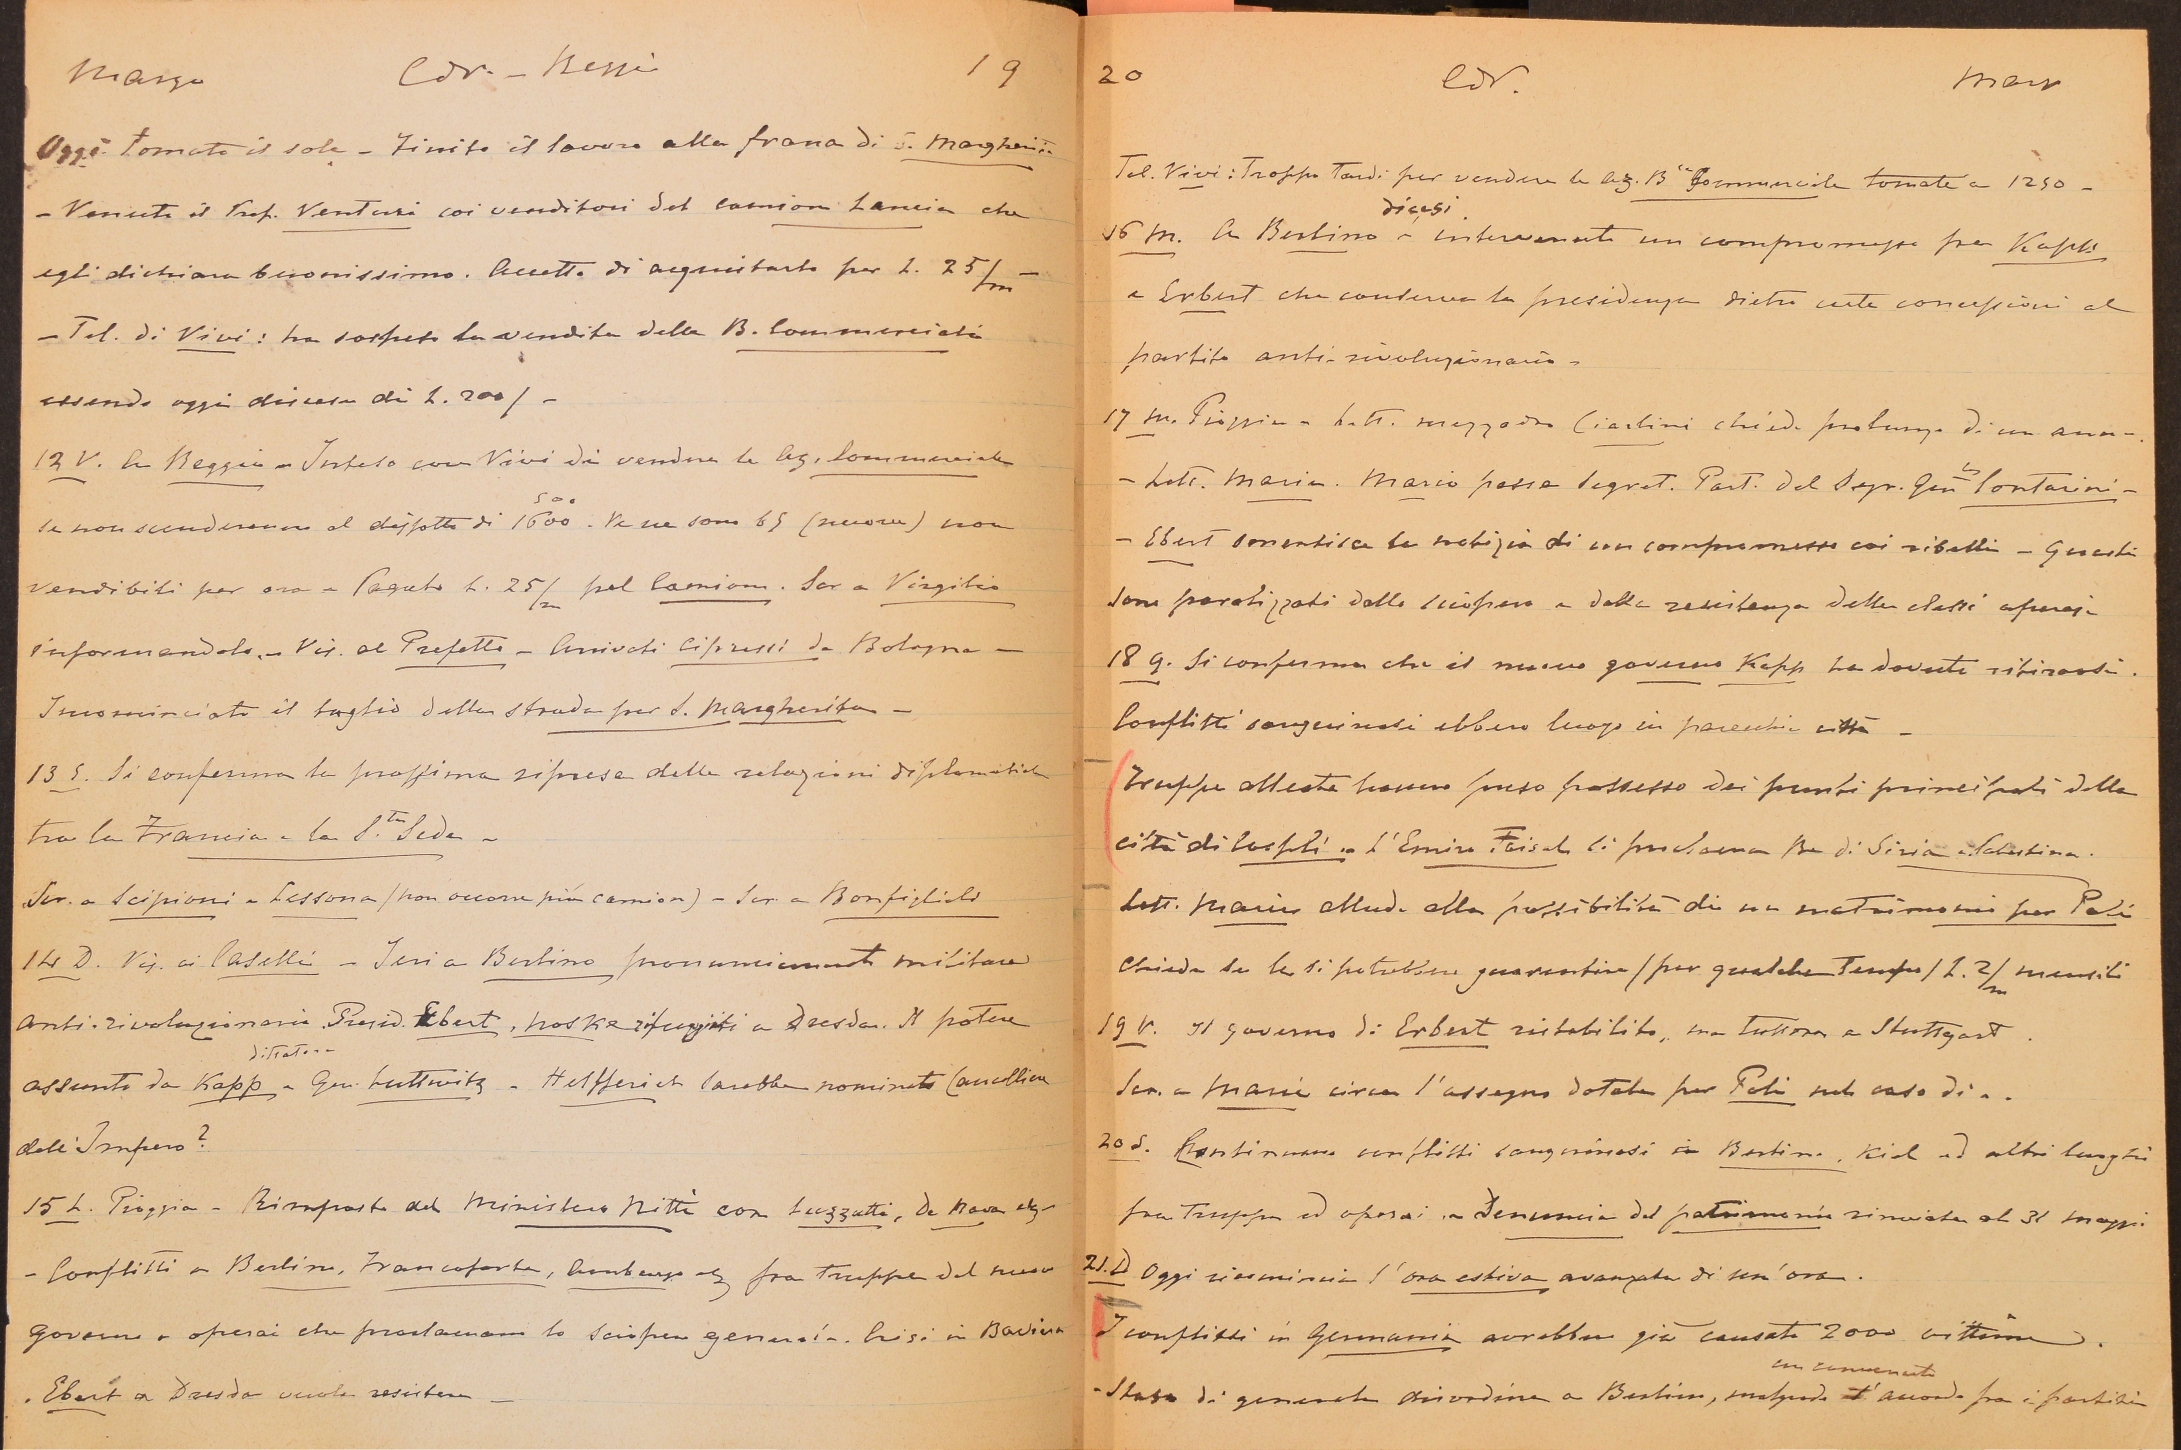 Marzo Cdr. - Reggio 19
Oggi tornato il sole - Finito il lavoro alla frana di S. Margherita
- Venuto il Prof. Venturi coi venditori del camion Lancia che
egli dichiara buonissimo. Accetto di acquistarlo per L. 25/m -
- Tel. di Vivi: ha sospeso la vendita della B. Commerciale
essendo oggi discesa di L. 200/ -
12 V. A Reggio - Inteso con Vivi di vendere le Az. Commerciale
500
se non scenderanno al disotto di 1600. Ve ne sono 65 (nuove) non
vendibili per ora - Pagato L. 25/m pel Camion. Scr. a Virgilio
informandolo. - Vis. al Prefetto - Arrivati cipressi da Bologna -
Incominciato il taglio della strada per S. Margherita -
13 S. Si conferma la prossima ripresa delle relazioni diplomatiche
tra la Francia e la S.ta Sede -
Scr. a Scipioni e Lessona (non occorre più camion) - Scr. a Bonfiglioli
14 D. Vis. ai Caselli - Ieri a Berlino pronunciamento militare
anti-rivoluzionario. Presid. Ebert, Noske rifugiati a Dresda. Il potere
dittatore
assunto da Kapp e Gen. Luttwitz - Helfferich sarebbe nominato Cancelliere
dell'Impero?
15 L. Pioggia - Rimpasto del Ministero Nitti con Luzzatti, De Nava etc.
- Conflitti a Berlino, Francoforte, Amburgo etc fra truppe del nuovo
governo e operai che proclamano lo sciopero generale. Crisi in Baviera
. Ebert a Dresda vuole resistere -
20 Cdr. Marzo
Tel. Vivi: Troppo tardi per vendere le Az. B.ca Commerciale tornate a 1250 -
dicesi
16 M. A Berlino è intervenuto un compromesso fra Kapp
e Erbert che conserva la presidenza dietro certe concessioni al
partito anti-rivoluzionario -
17 M. Pioggia - Lett. mezzadro Ciarlini chiede prolungo di un anno -
- Lett. Maria. Mario passa Segret. Part. del Segr. Gen.le Contarini -
- Ebert smentisce la notizia di un compromesso coi ribelli - Questi
sono paralizzati dallo sciopero e dalla resistenza delle classi operaje
18 G. Si conferma che il nuovo governo Kapp ha dovuto ritirarsi.
Conflitti sanguinosi ebbero luogo in parecchie città -
Truppe alleate hanno preso possesso dei punti principali della
città di Cospli - L'Emiro Faisal si proclama Re di Siria e Palestina.
Lett. Mario allude alla possibilità di un matrimonio per Poli
chiede se le si potrebbero guarentire (per qualche tempo) L. 2/m mensili
19 V. Il governo di Erbert ristabilito, ma tuttora a Stuttgart.
Scr. a Mario circa l'assegno dotale per Poli nel caso di ..
20 S. Continuano conflitti sanguinosi in Berlino, Kiel ed altri luoghi
fra truppe ed operai. - Denuncia del patrimonio rinviata al 31 Maggio
21. D Oggi ricomincia l'ora estiva avanzata di un'ora.
I conflitti in Germania avrebbero già causato 2000 vittime.
un convenuto
- Stato di generale disordine a Berlino, malgrado l' accordo fra i partiti